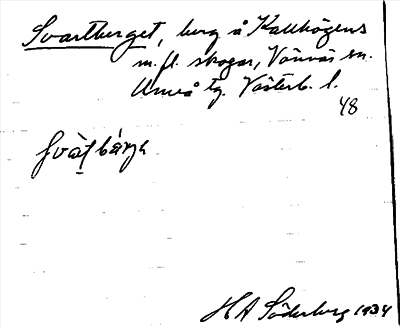 Svartberget, berg å Kallhögens
m.fl. skogar, Vännäs sn.
Umeå tg. Västerb. l.
48
H A Söderberg 1934